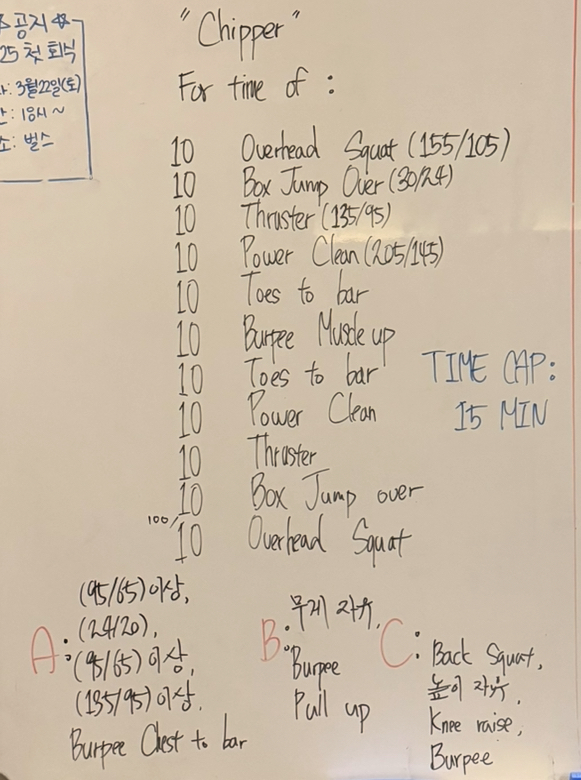 공지
25 첫 회식
: 3월22일(토)
: 18시~
: 벌스
"Chipper"
For time of :
10 Overhead Squat (155/105)
10 Box Jump Over (30/24)
10 Thruster (135/95)
10 Power Clean (205/145)
10 Toes to bar
10 Burpee Muscle up
10 Toes to bar
10 Power Clean
10 Thruster
10 Box Jump over
100/
10 Overhead Squat
TIME CAP:
15 MIN
A: (95/65)이상,
(24/20),
(95/65)이상,
(135/95)이상.
Burpee Chest to bar
B: 무게 자유,
Burpee
Pull up
C: Back Squat,
높이 자유,
Knee raise,
Burpee